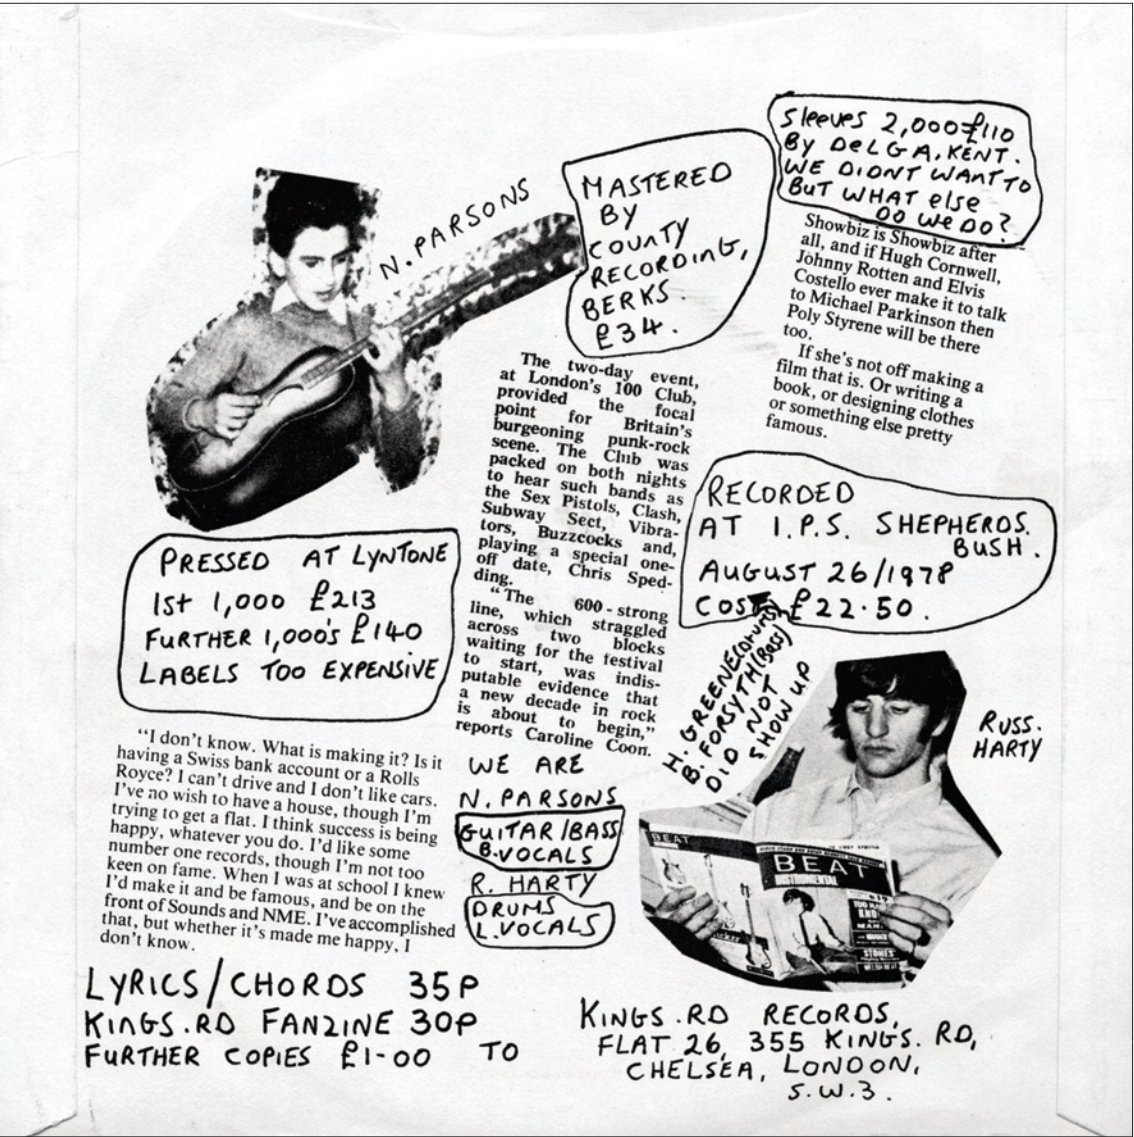 Sleeves 2,000 £110
By DeLGA, KENT.
WE DIDNT WANT TO
BUT WHAT else
DO WE DO?
MASTERED
BY
COUNTY
RECORDING,
BERKS.
£34.
N. PARSONS
Showbiz is Showbiz after
all, and if Hugh Cornwell,
Johnny Rotten and Elvis
Costello ever make it to talk
to Michael Parkinson then
Poly Styrene will be there
too.
If she's not off making a
film that is. Or writing a
book, or designing clothes
or something else pretty
famous.
The two-day event,
at London's 100 Club,
provided the focal
point for Britain's
burgeoning punk-rock
scene. The Club was
packed on both nights
to hear such bands as
the Sex Pistols, Clash,
Subway Sect, Vibra-
tors, Buzzcocks and,
playing a special one-
off date, Chris Sped-
ding.
"The 600-strong
line, which straggled
across two blocks
waiting for the festival
to start, was indis-
putable evidence that
a new decade in rock
is about to begin,"
reports Caroline Coon.
RECORDED
AT I.P.S. SHEPHERDS.
BUSH.
AUGUST 26/1978
COST £22.50.
H. GREENE (DRUMS)
B. FORSYTH (BASS)
DID NOT
SHOW UP
PRESSED AT LYNTONE
1st 1,000 £213
FURTHER 1,000'S £140
LABELS TOO EXPENSIVE
"I don't know. What is making it? Is it
having a Swiss bank account or a Rolls
Royce? I can't drive and I don't like cars.
I've no wish to have a house, though I'm
trying to get a flat. I think success is being
happy, whatever you do. I'd like some
number one records, though I'm not too
keen on fame. When I was at school I knew
I'd make it and be famous, and be on the
front of Sounds and NME. I've accomplished
that, but whether it's made me happy, I
don't know.
WE ARE
N. PARSONS
GUITAR/BASS
B.VOCALS
R. HARTY
DRUMS
L.VOCALS
RUSS.
HARTY
BEAT
BEAT
INSTRUMENTAL
STONES'
LYRICS/CHORDS 35P
KINGS.RD FANZINE 30P
FURTHER COPIES £1-00 TO
KINGS.RD RECORDS,
FLAT 26, 355 KINGS. RD,
CHELSEA, LONDON,
S.W.3.